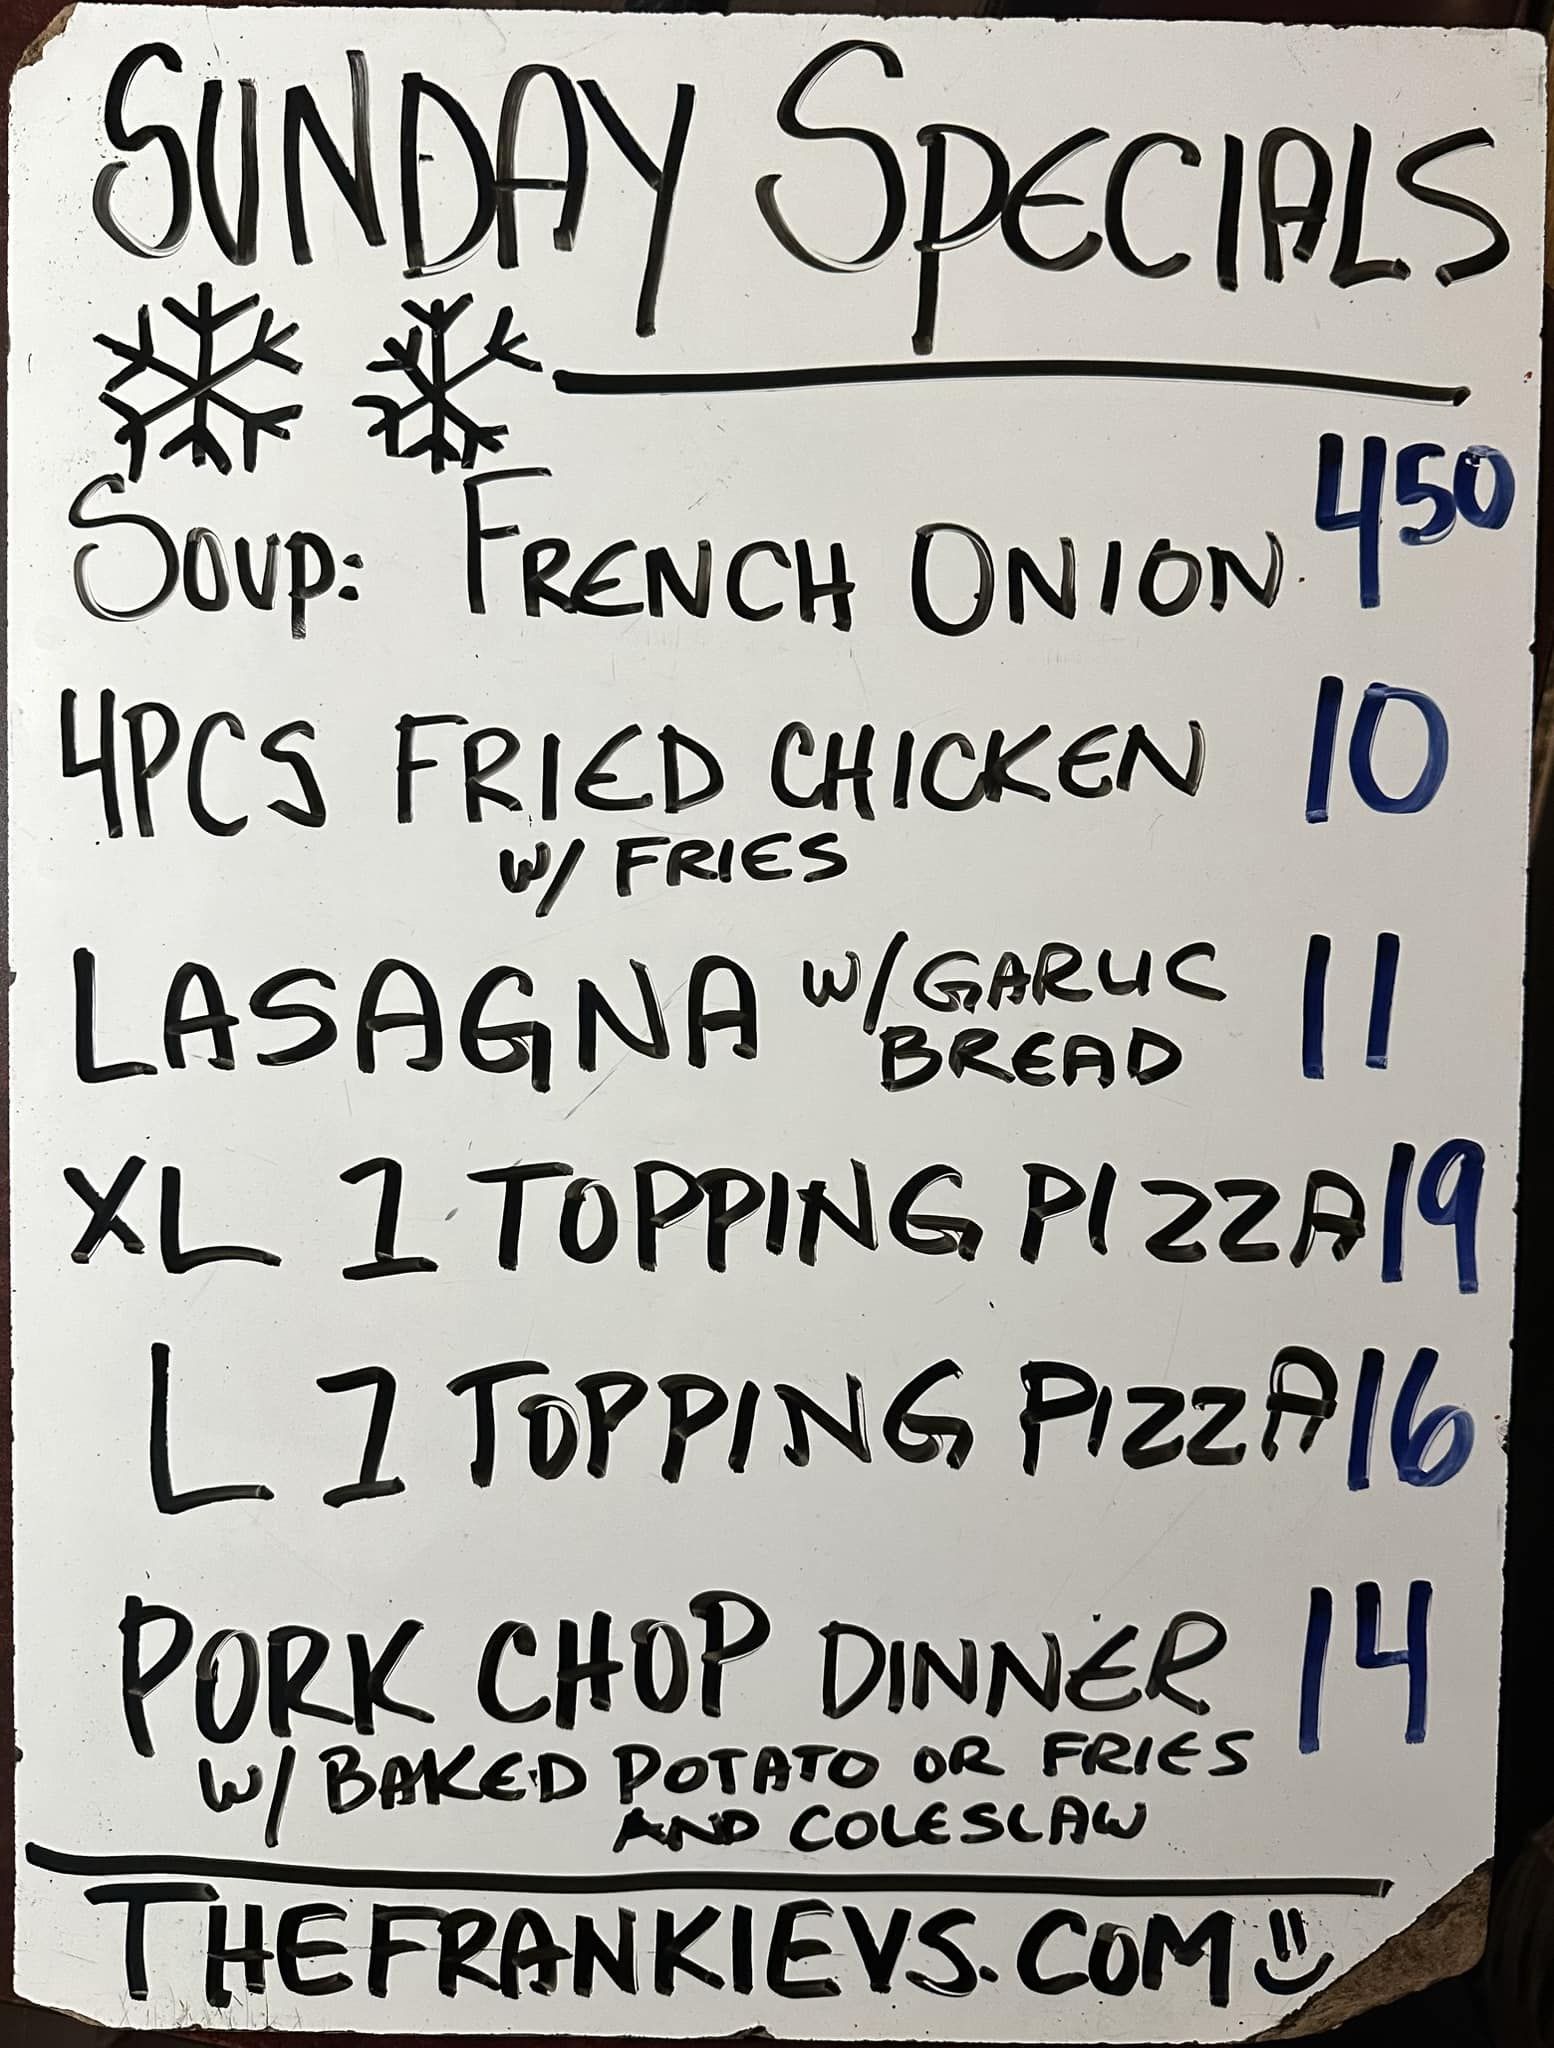 SUNDAY SPECIALS
SOUP: FRENCH ONION 4 50
4PCS FRIED CHICKEN 10
W/ FRIES
LASAGNA W/ GARLIC 11
BREAD
XL 1 TOPPING PIZZA 19
L 1 TOPPING PIZZA 16
PORK CHOP DINNER 14
W/ BAKED POTATO OR FRIES
AND COLESLAW
THEFRANKIEVS.COM